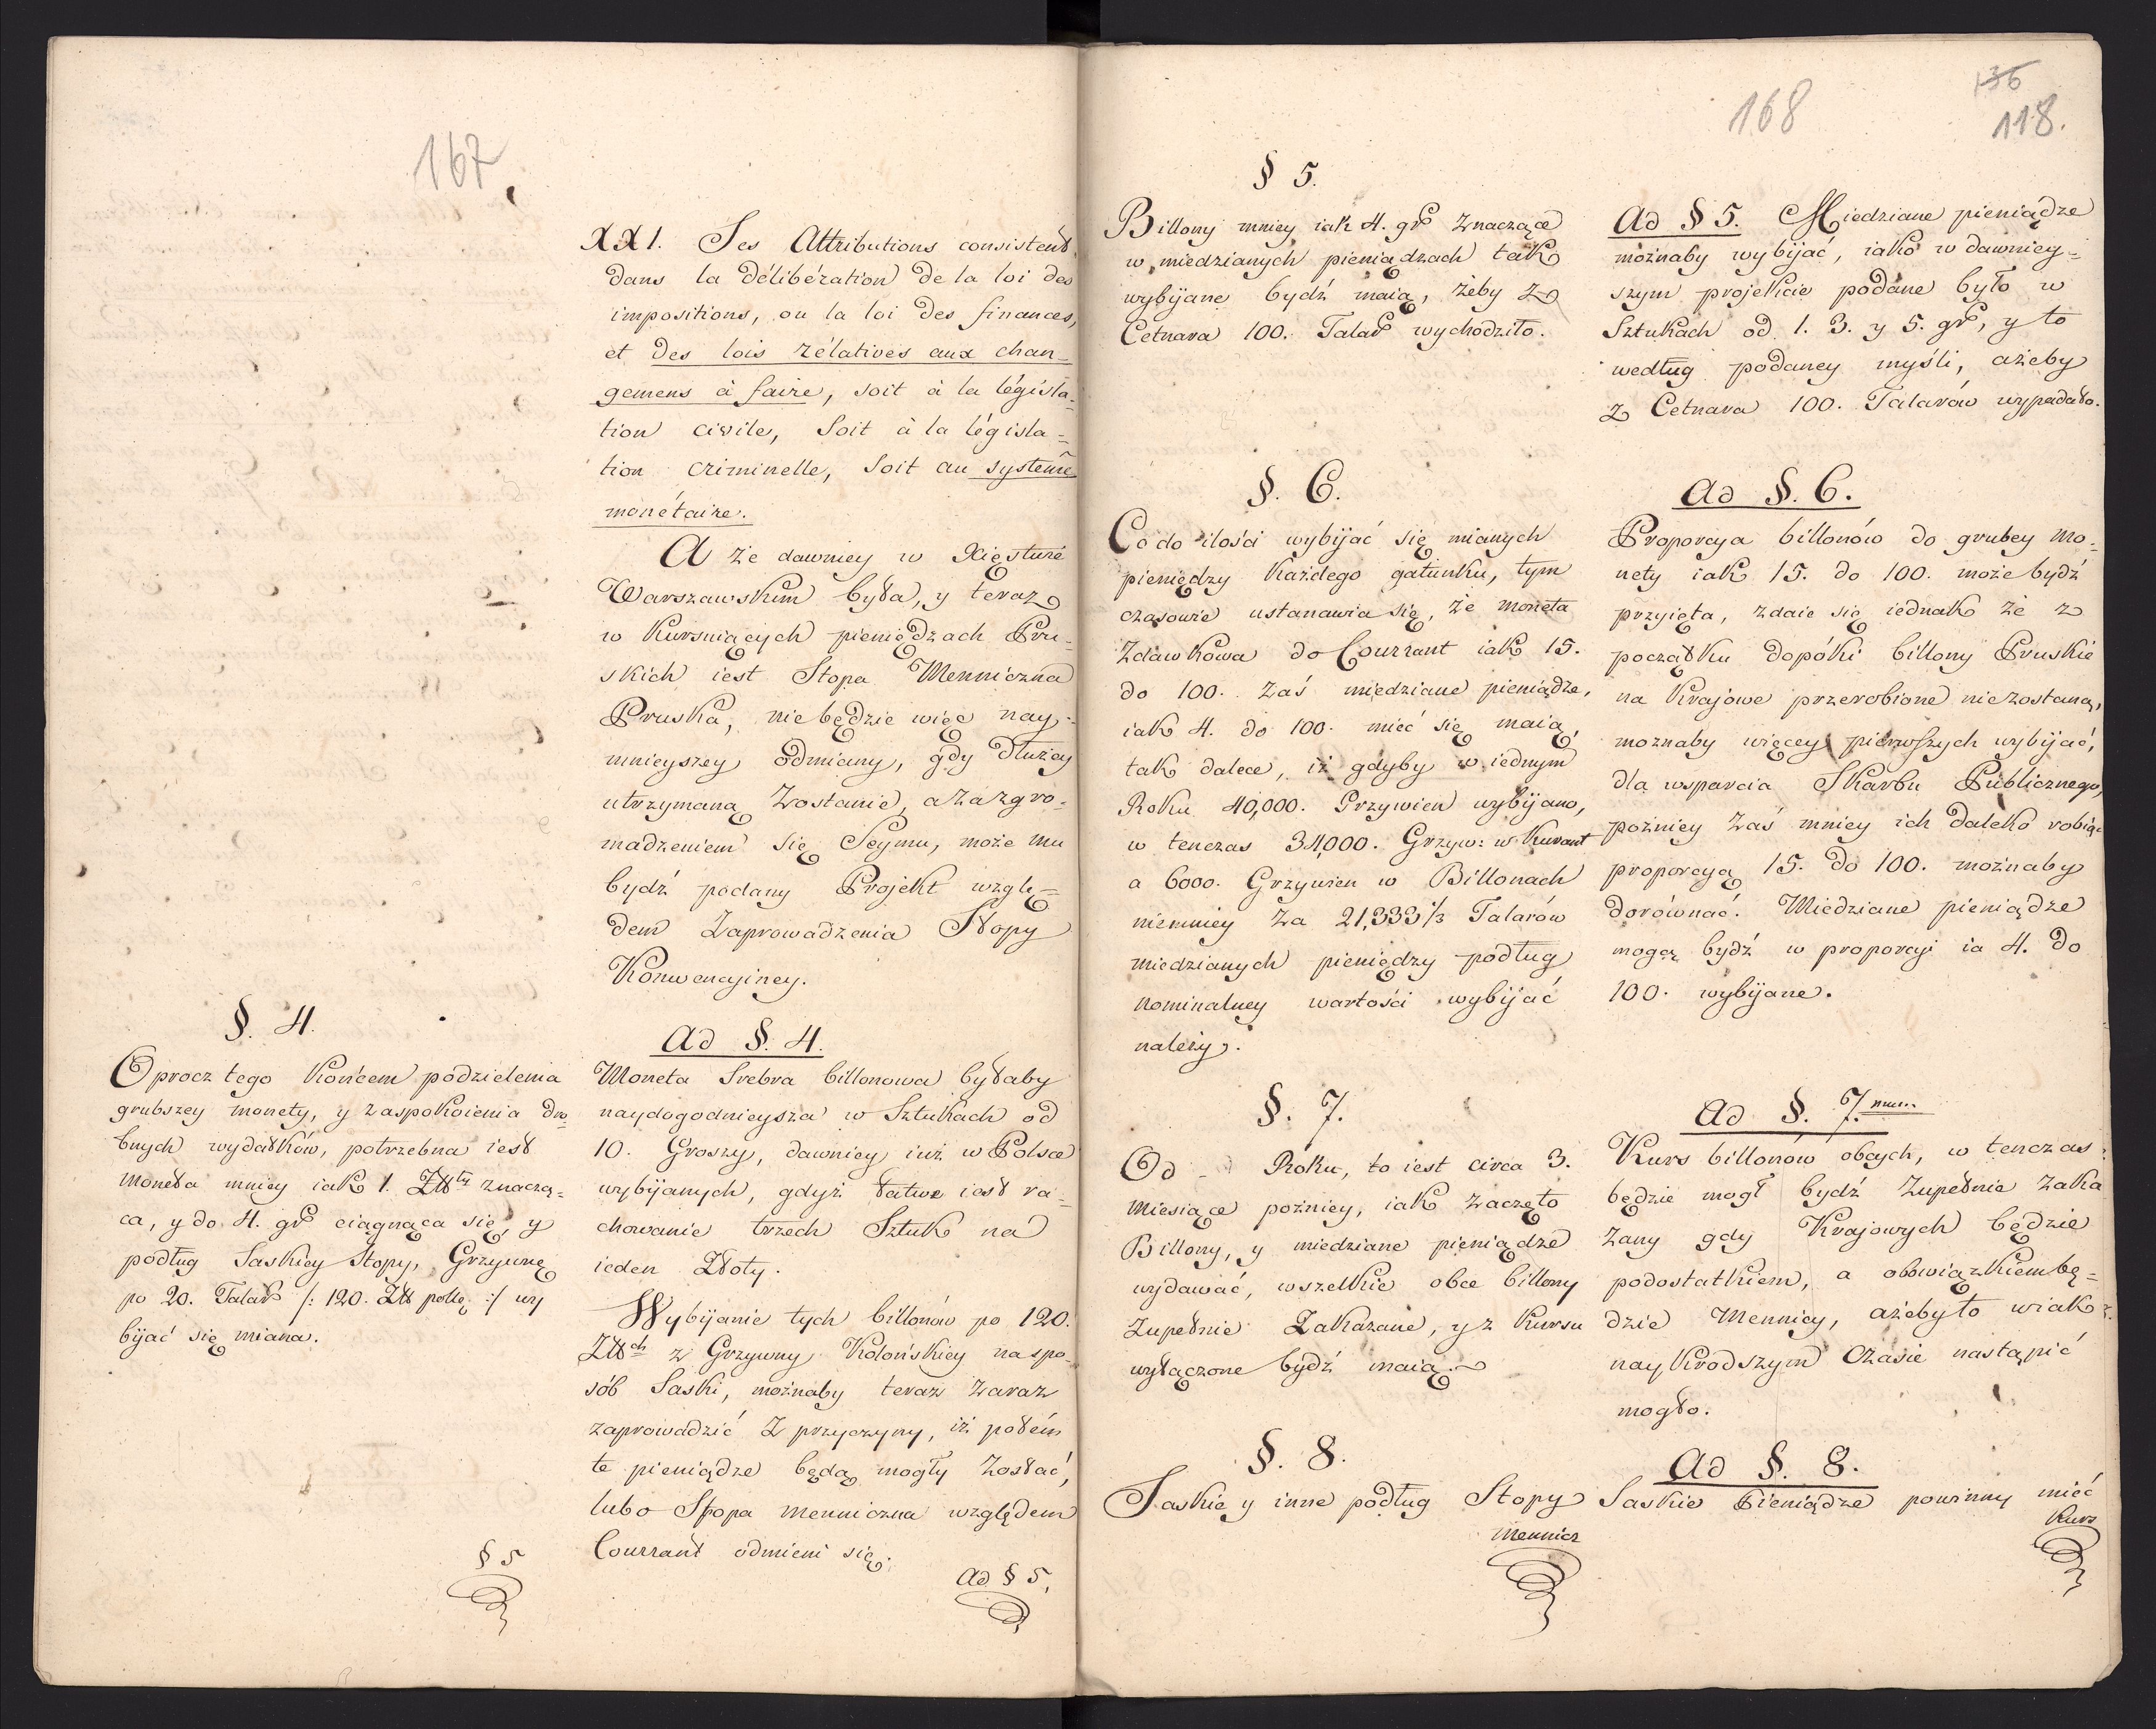 167.
§. 4.
Oprocz tego końcem podzielenia
grubszey monety, y zaspokoienia dro=
bnych wydatków, potrzebna iest
moneta mniey iak 1. Złty znaczą=
ca, y do 4. gr ciągnąca się, y
podług Saskiey Stopy, Grzywnę
po 20. Talar /: 120. Zł polk :/ wy
bijać się miana.
§ 5
XXI. Ses Attributions consistent
dans la délibération de la loi des
impositions, ou la loi des finances,
et des lois rélatives aux chan=
gemens à faire, soit à la législa=
tion civile, soit à la législa=
tion criminelle, soit au systeme
monétaire.
A że dawniey w Xięstwie
Warszawskim była, y teraz
w kursuiących pieniędzach Pru=
skich iest Stopa Mennicza
Pruska, nie będzie więc nay=
mnieyszey odmiany, gdy dłużey
utrzymaną zostanie, a za zgro=
madzeniem się Seymu, może mu
bydź podany Projekt wzglę=
dem Zaprowadzenia Stopy
Konwencyiney.
Ad §. 4.
Moneta Srebra billonowa byłaby
naydogodnieysza w Sztukach od
10. Groszy, dawniey iuż w Polsce
wybijanych, gdyż łatwe iest ra=
chowanie trzech Sztuk na
ieden Złoty.
Wybijanie tych billonów po 120.
Złch z Grzywny Kolońskiey na spo=
sób Saski, możnaby teraz zaraz
zaprowadzić z przyczyny, iż potém
te pieniądze będą mogły zostać,
lubo Stopa mennicza względem
Courrant odmieni się.
Ad § 5,
168
136
118.
§ 5.
Billony mniey iak 4. gr znaczące
w miedzianych pieniądzach tak
wybijane bydź maią, żeby z
Cetnara 100. Talar wychodziło.
§. 6.
Co do ilości wybijać się mianych
pieniędzy każdego gatunku, tym
czasowie ustanawia się, że moneta
Zdawkowa do Courrant iak 15.
do 100. zaś miedziane pieniądze,
iak 4. do 100. mieć się maią,
tak dalece, iż gdyby w iednym
Roku 40,000. Grzywien wybijano,
w tenczas 34,000. Grzyw: w Kurant
a 6000. Grzywien w Billonach
niemniey za 21,333⅓ Talarów
miedzianych pieniędzy podług
nominalney wartości wybijać
należy.
§. 7.
Od Roku, to iest circa 3.
miesiące pożniey, iak zaczęto
Billony, y miedziane pieniądze
wydawać, wszelkie obce billony
zupełnie Zakazane, y z kursu
wyłączone bydź maią.
§. 8.
Saskie y inne podług Stopy
mennicz
Ad § 5. Miedziane pieniądze
możnaby wybijać, iako w dawniey=
szym projekcie podane było w
Sztukach od 1. 3. y 5. gr, y to
według podaney myśli, ażeby
z Cetnara 100. Talarów wypadało.
Ad §. 6.
Proporcya billonów do grubey mo=
nety iak 15. do 100. może bydź
przyięta, zdaie się iednak że z
początku dopóki billony Pruskie
na Krajowe przerobione nie zostaną,
moznaby więcey pierwszych wybijać,
dla wsparcia Skarbu Publicznego,
pożniey zaś mniey ich daleko robiąc
proporcyą 15. do 100. możnaby
dorównać. Miedziane pieniądze
mogą bydź w proporcyi ia 4. do
100. wybijane.
Ad §. 7.mum.
Kurs billonów obcych, w tenczas
będzie mogł bydź zupełnie zaka
zany gdy Krajowych będzie
podostatkiem, a obowiązkiem bę=
dzie Mennicy, ażeby to w iak
naykrodszym Czasie nastąpić
mogło.
Ad §. 8.
Saskie Pieniądze powinny mieć
Kurs